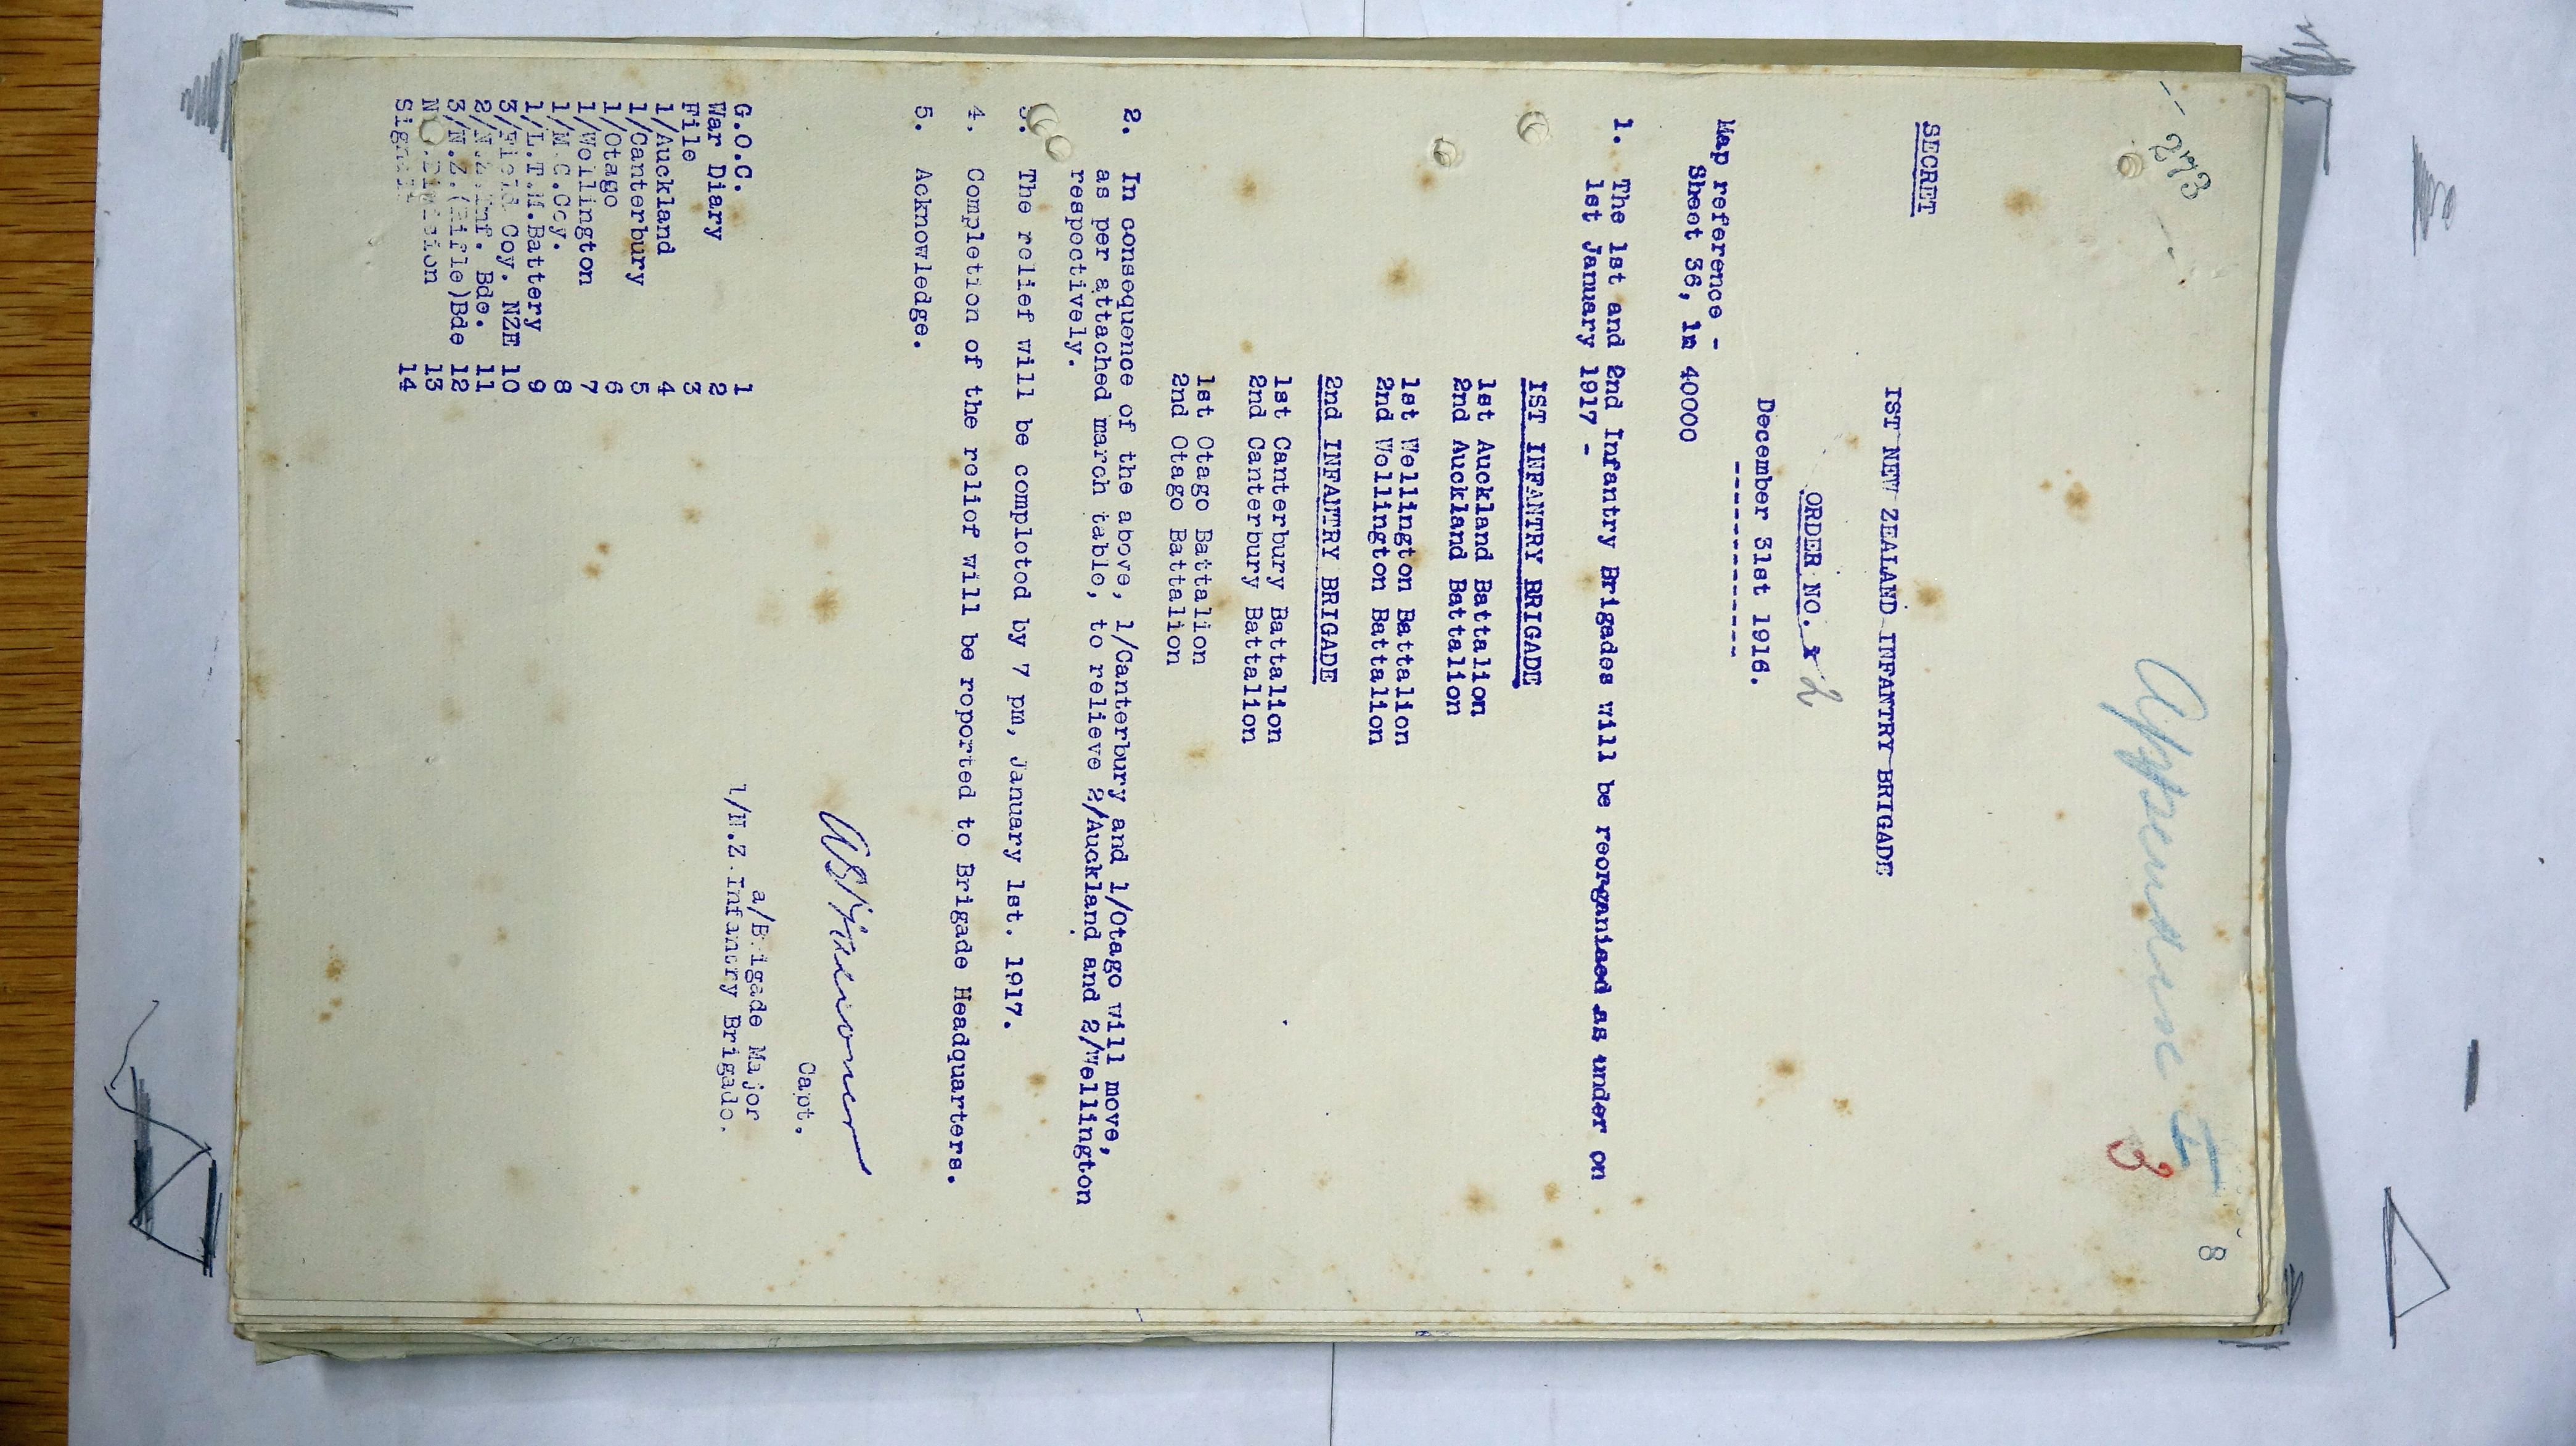 273
Appendix I
3
8
SECRET
IST NEW ZEALAND INFANTRY BRIGADE
ORDER NO. 2
December 31st 1916.
------------
Map reference -
Sheet 36, 1n 40000
1. The 1st and 2nd Infantry Brigades will be reorganised as under on
1st January 1917 -
IST INFANTRY BRIGADE
1st Auckland Battalion
2nd Auckland Battalion
1st Wellington Battalion
2nd Wollington Battalion
2nd INFANTRY BRIGADE
1st Canterbury Battalion
2nd Canterbury Battalion
1st Otago Battalion
2nd Otago Battalion
2. In consequence of the above, 1/Canterbury and 1/Otago will move,
as per attached march table, to relieve 2/Auckland and 2/Wellington
respectively.
3. The relief will be complotod by 7 pm, January 1st. 1917.
4. Completion of the roliof will be roported to Brigade Headquarters.
5. Acknowledge.
Capt.
a/Brigade Major
1/N.Z.Infantry Brigado.
G.O.C. 1
War Diary 2
File 3
1/Auckland 4
1/Canterbury 5
1/Otago 6
1/Wollington 7
1/M.G.Coy. 8
1/L.T.M.Battery 9
3/Field Coy. NZE 10
2/N.Z.Inf. Bde. 11
3/N.Z.(Rifle)Bde 12
N.Z.Division 13
Signals 14